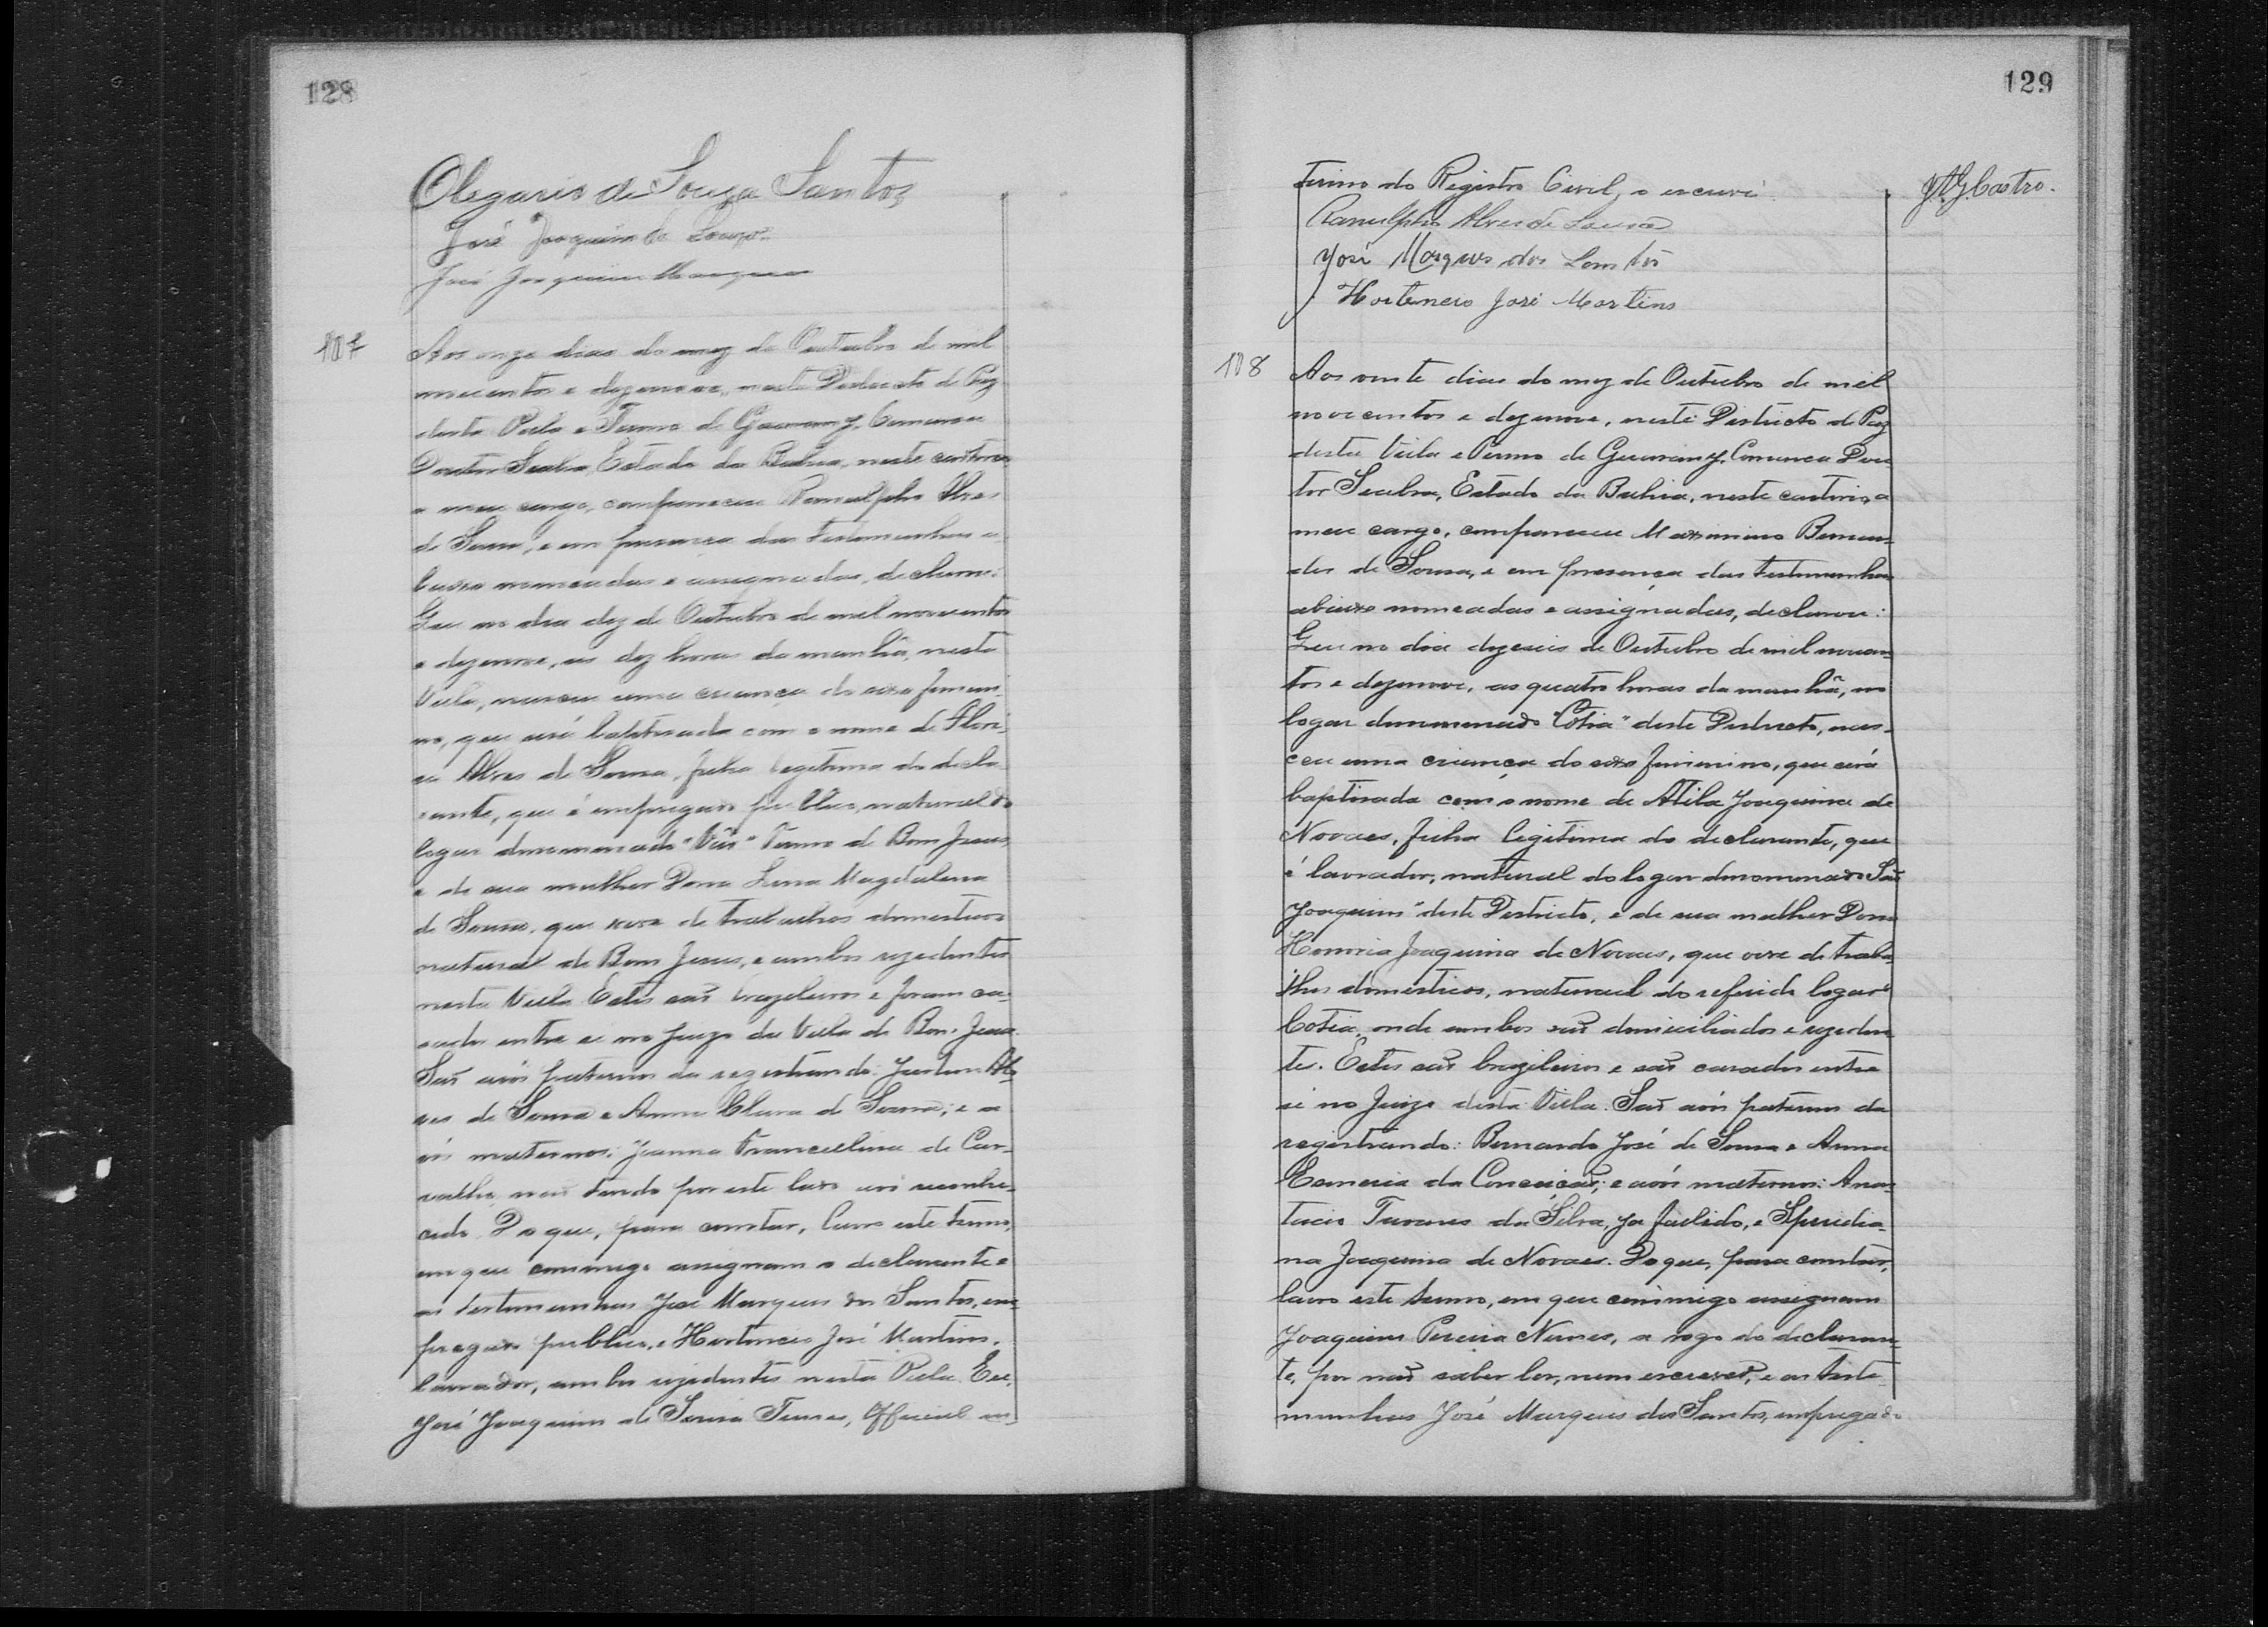 128
Olegario de Souza Santos
José Joaquim de Souza
José Joaquim Marques
107
Aos onze dias do mez de Outubro de mil
novecentos e dezenove, neste Districto de Paz
desta Villa e Termo de Guarany, Comarca
Doutor Seabra, Estado da Bahia, neste cartorio
a meu cargo, compareceu Ranulpho Alves
de Sousa, e em presença das testemunhas a
baixo nomeadas e assignadas, declarou:
Que no dia dez de Outubro de mil novecentos
e dezenove, as dez horas da manhã, nesta
Villa, nasceu uma criança do sexo femini-
no, que será baptisada com o nome de
Alves de Sousa, filha legitima do decla
rante, que é empregado publico, natural do
logar denominado Termo de Bom Jesus,
e de sua mulher Dona Magdalena
de Sousa, que vive de trabalhos domesticos
natural de Bom Jesus, e ambos rezidentes
nesta Villa. Estes são brazileiros e foram ca-
sados entre si no Juizo da Villa de Bom Jesus.
São avós paternos da registranda: Al-
ves de Sousa e Anna Clara de Sousa; e a
vós maternos: Joanna Francellina de Car-
valho, não tendo por este lado avô reconhe-
cido. Do que, para constar, lavro este termo,
em que commigo assignam o declarante e
as testemunhas José Marques dos Santos, em-
pregado publico, e Hortencio José Martins,
lavrador, ambos rezidentes nesta Villa. Eu,
José Joaquim de Sousa Official in-
129
terino do Registro Civil, o escrevi.
Ranulpho Alves de Sousa
José Marques dos Santos
Hortencio José Martins
Castro.
108
Aos vinte dias do mez de Outubro de mil
novecentos e dezenove, neste Districto de Paz
desta Villa e Termo de Guarany, Comarca Dou
tor Seabra, Estado da Bahia, neste cartorio, a
meu cargo, compareceu Maximino Bernar-
des de Sousa, e em presença das testemunhas
abaixo nomeadas e assignadas, declarou:
Que no dia dezeseis de Outubro de mil novecen-
tos e dezenove, as quatro horas da manhã, no
logar denominado "Cotia" deste Districto, nas-
ceu uma criança do sexo feminino, que será
baptisada com o nome de Atila Joaquina de
Novaes, filha legitima do declarante, que
é lavrador, natural do logar denominado São
Joaquim" deste Districto, e de sua mulher Dona
Honoria Joaquina de Novaes, que vive de traba-
lhos domesticos, natural do referido logar
Cotia, onde ambos são domiciliados e reziden
tes. Estes são brazileiros e são casados entre
si no Juizo desta Villa. São avós paternos da
registranda: Bernardo José de Sousa e Anna
da Conceição; e avós maternos: Anas-
tacio Tavares da Silva, já fallido, e Speridia-
na Joaquina de Novaes. Do que, para constar,
lavro este termo, em que commigo assignam
Joaquim Pereira Nunes, a rogo do declaran-
te, por não saber ler, nem escrever, e as teste
munhas José Marques dos Santos, empregado